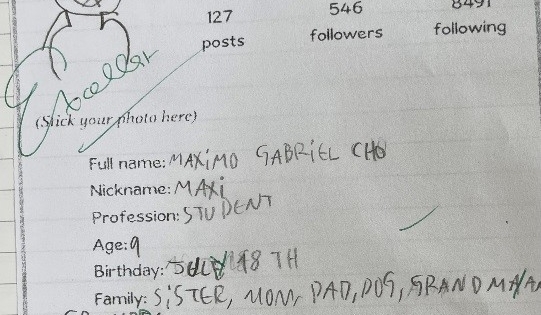 127 546 8491
posts followers following
Excellent
(Stick your photo here)
Full name: MAXiMO GABRiEL CHO
Nickname: MAXi
Profession: STUDENT
Age: 9
Birthday: JULY 18 TH
Family: SiSTER, MOM, DAD, DOG,